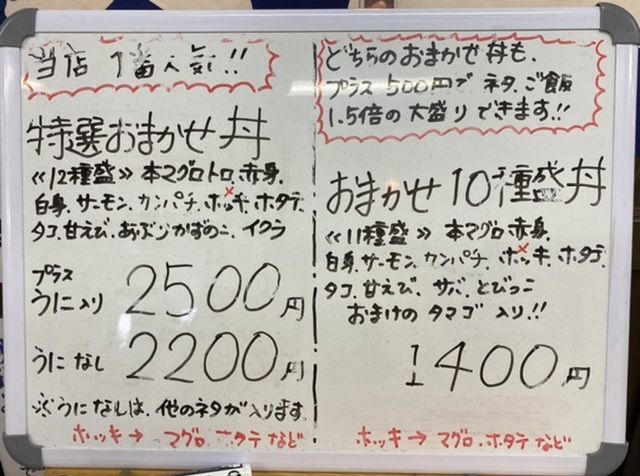 当店 1番人気!!
特選おまかせ丼
≪12種盛≫ 本マグロトロ.赤身.
白身.サーモン.カンパチ.ホッキ.ホタテ.
タコ.甘えび.あぶりかずのこ.イクラ
プラス
うに入り 2500円
うになし 2200円
※うになしは.他のネタが入ります
ホッキ→ マグロ.ホタテなど
どちらのおまかせ丼も.
プラス500円で ネタ.ご飯
1.5倍の大盛りできます!!
おまかせ10種盛丼
≪11種盛≫ 本マグロ赤身.
白身.サーモン.カンパチ.ホッキ.ホタテ.
タコ.甘えび.サバ.とびっこ
おまけのタマゴ入り!!
1400円
ホッキ→マグロ.ホタテなど